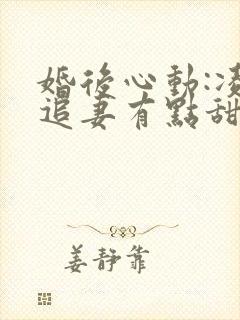 婚後心動:凌
追妻有點甜
姜靜靠